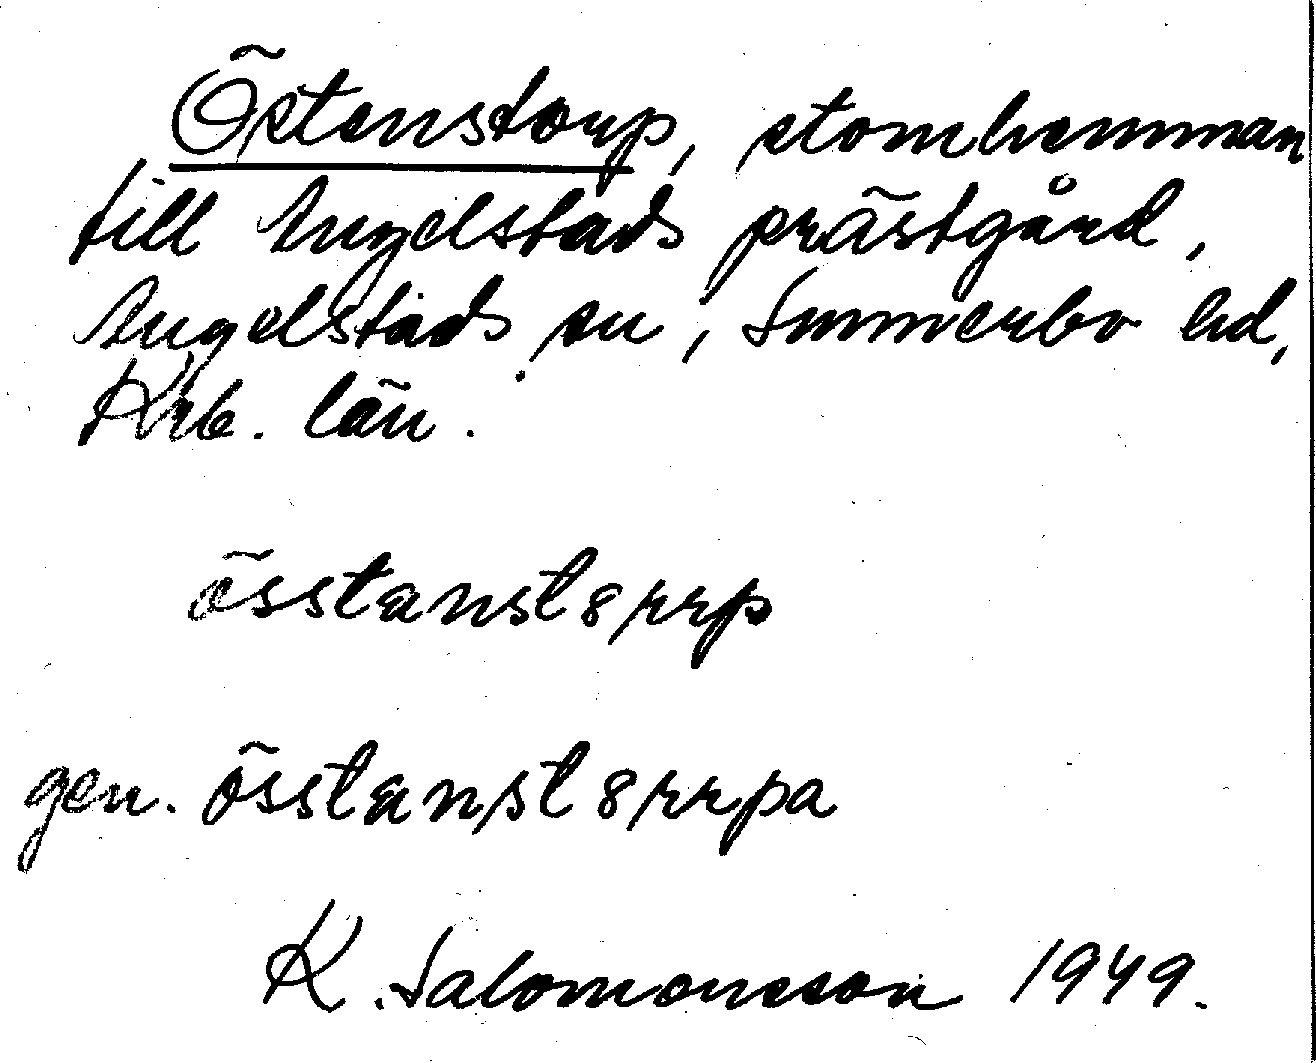 Östenstorp, stomhemman
till Angelstads prästgård,
Angelstads sn, Sunnerbo hd,
Krb. län.
össtanst8rrp
gen. össtanst8rrpa
K. Salomonsson 1949.